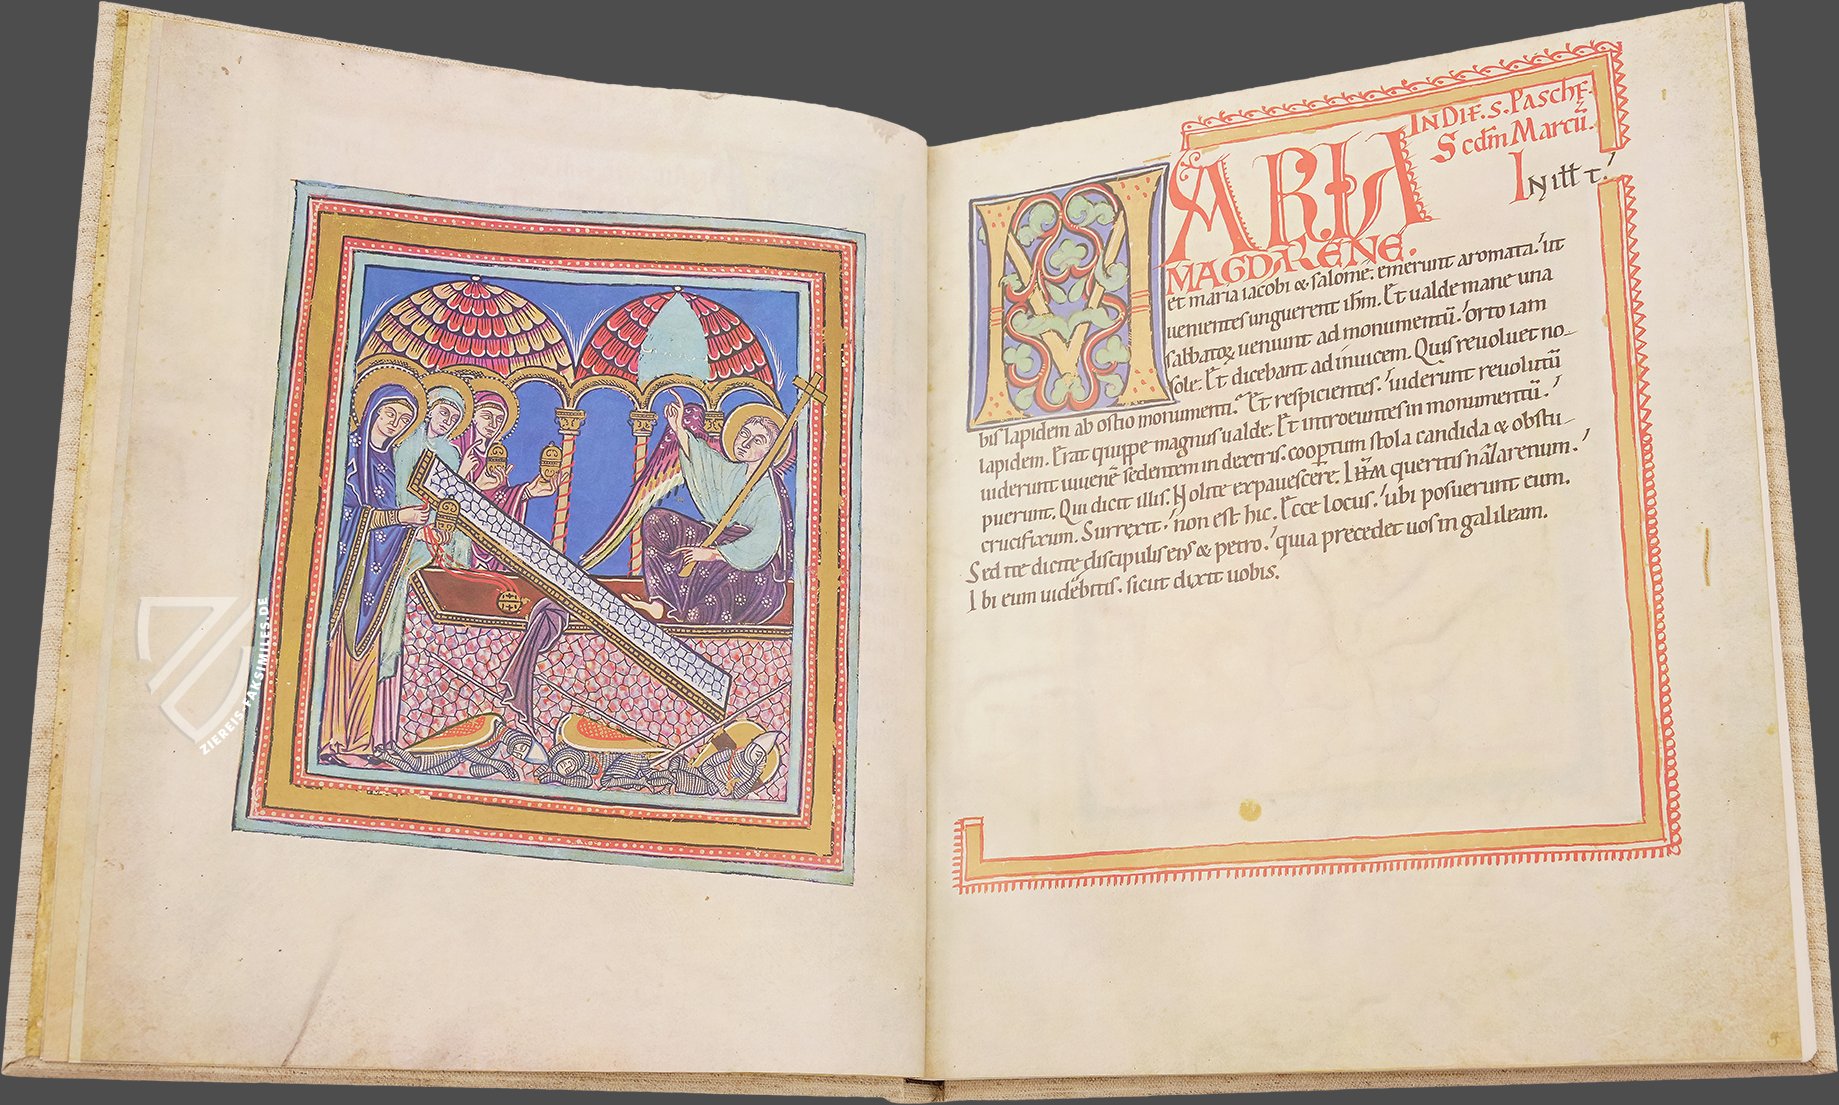 IN DIE. S. PASCHE.
Scdm Marcū.
IN illt.
MARIA
MAGDALENE.
et maria iacobi & salome. emerunt aromata. ut
uenientes unguerent ihm. Et ualde mane una
sabbatoꝝ ueniunt ad monumentū. orto iam
sole. Et dicebant ad inuicem. Quis reuoluet no-
bis lapidem ab ostio monumenti. Et respicientes. uiderunt reuolutū
lapidem. Erat quippe magnus ualde. Et introeuntes in monumentū.
uiderunt iuuenē sedentem in dextris. coopertum stola candida & obstu-
puerunt. Qui dicit illis. Nolite expauescere. Ihm queritis nazarenum.
crucifixum. Surrexit. non est hic. Ecce locus. ubi posuerunt eum.
Sed ite dicite discipulis eius & petro. quia precedet uos in galileam.
Ibi eum uidebitis. sicut dixit uobis.
ZIEREIS-FAKSIMILES.DE